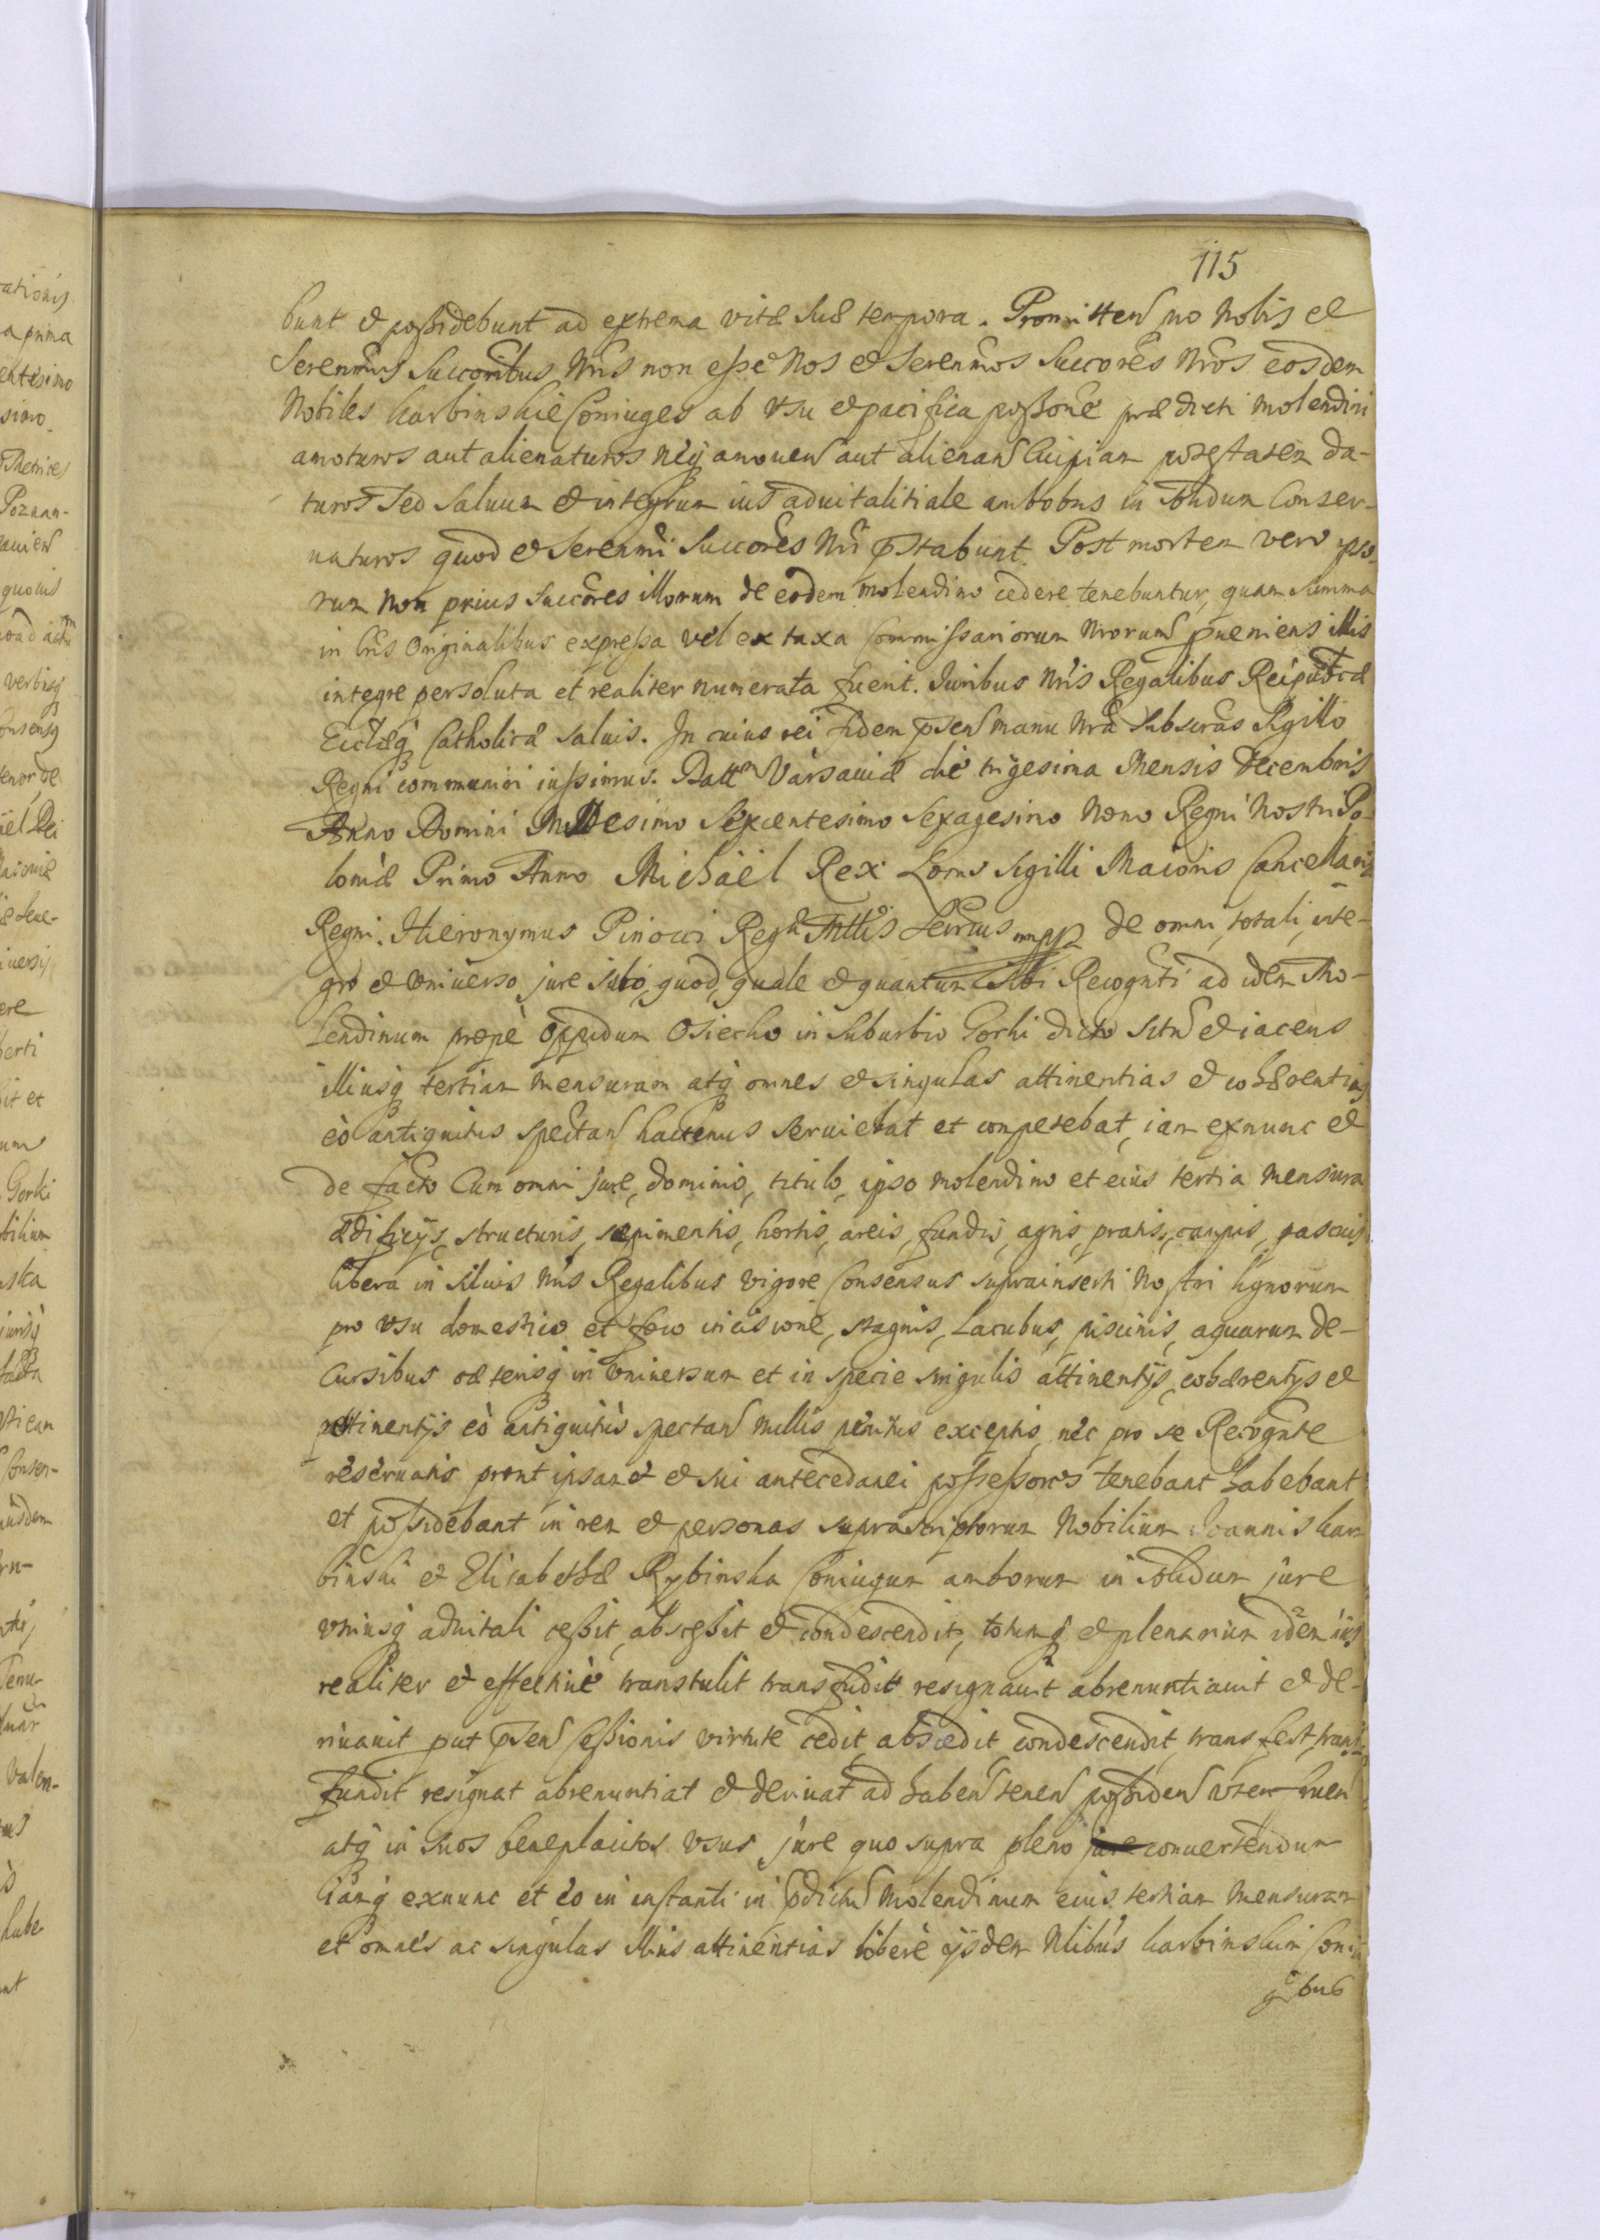 115
bunt et possidebunt ad extrema vitæ suæ tempora. Promitten pro Nobis et
Serenmis Succoribus Nris non esse Nos et Serenmos Succores Nros eosdem
Nobiles Karbinskie Coniuges ab usu et pacifica possone prædicti molendini
amoturos aut alienaturos neq amouen aut alienan cuipiam potestatem da-
turos sed saluum et integrum ius aduitalitiale ambobus in solidum conser-
uaturos quod et Serenmi Succores Nri pstabunt. Post mortem vero ipso-
rum non prius succores illorum de eodem molendino cedere tenebuntur, quam summa
in lris Originalibus expressa vel ex taxa Commissariorum Nrorum pueniens illis
integre persoluta et realiter numerata fuerit. Juribus Nris Regalibus Reipublcæ
Ecclæq Catholicæ saluis. In cuius rei fidem psen manu Nra subscras Sigillo
Regni communiri iussimus. Datt Varsauiæ die trigesima Mensis Decembris
Anno Domini Millesimo Sexcentesimo Sexagesimo Nono Regni Nostri Po-
loniæ Primo Anno Michael Rex Locus Sigilli Maioris Cancellariæ
Regni. Hieronymus Pinocci Reg Mttis Secrius mpp De omni, totali, inte-
gro et vniuerso jure suo, quod, quale et quantum sibi Recognti ad idem Mo-
lendinum prope Oppidum Osiecko in Suburbio Gorki dicto sitn et iacens
illiusq tertiam mensuram atq omnes et singulas attinentias et cohærentias
eò antiquitus spectan hactenus seruiebat et competebat, iam exnunc et
de facto cum omni jure, dominio, titulo, ipso molendino et eius tertia mensura
ædificijs, structuris, sepimentis, hortis, areis, fundis, agris, pratis, campis, pascuis
libera in siluis Nris Regalibus vigore Consensus suprainserti Nostri lignorum
pro vsu domestico et foco incisione, stagnis, lacubus, piscinis, aquarum de-
cursibus cæterisq in vniuersum et in specie singulis attinentijs, cohærentijs et
ptinentijs eò antiquitùs spectan nullis penitus exceptis, nec pro se Recognte
reseruatis prout ipsamet et sui antecedanei possessores tenebant habebant
et possidebant in rem et personas suprascriptorum Nobilium Joannis Kar
binski et Elisabethæ Rybinska Coniugum amborum in solidum jure
vniusq aduitali cessit, abscessit et condescendit, totumq et plenarium idem ius
realiter et effectiuè transtulit transfudit resignauit abrenuntiauit et de-
riuauit put psen Cessionis virtute cedit abscedit condescendit, transfert, trans-
fundit resignat abrenuntiat et deriuat ad haben tenen possiden vten fruen
atq in suos beneplacitos vsus jure quo supra pleno conuertendum
iamq exnunc et eo in instanti in pdictum Molendinum eius tertiam mensuram
et omnes ac singulas illius attinentias liberè ijsdem Nlibus Karbinskim Coniu
gibus